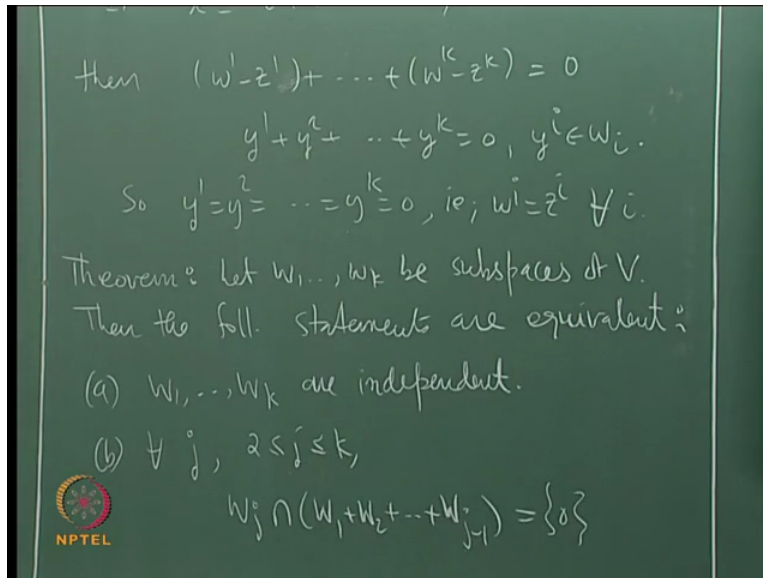 then (w¹-z¹)+ ---- +(wᵏ-zᵏ) = 0
y¹+y²+ -- +yᵏ=0, yⁱ∈Wᵢ.
So y¹=y²= -- =yᵏ=0, ie; wⁱ=zⁱ ∀ i.
Theorem: Let W₁..,Wₖ be subspaces of V.
Then the foll. statements are equivalent:
(a) W₁,..,Wₖ are independent.
(b) ∀ j, 2≤j≤k,
Wⱼ∩(W₁+W₂+--+Wⱼ₋₁) = {0}
NPTEL